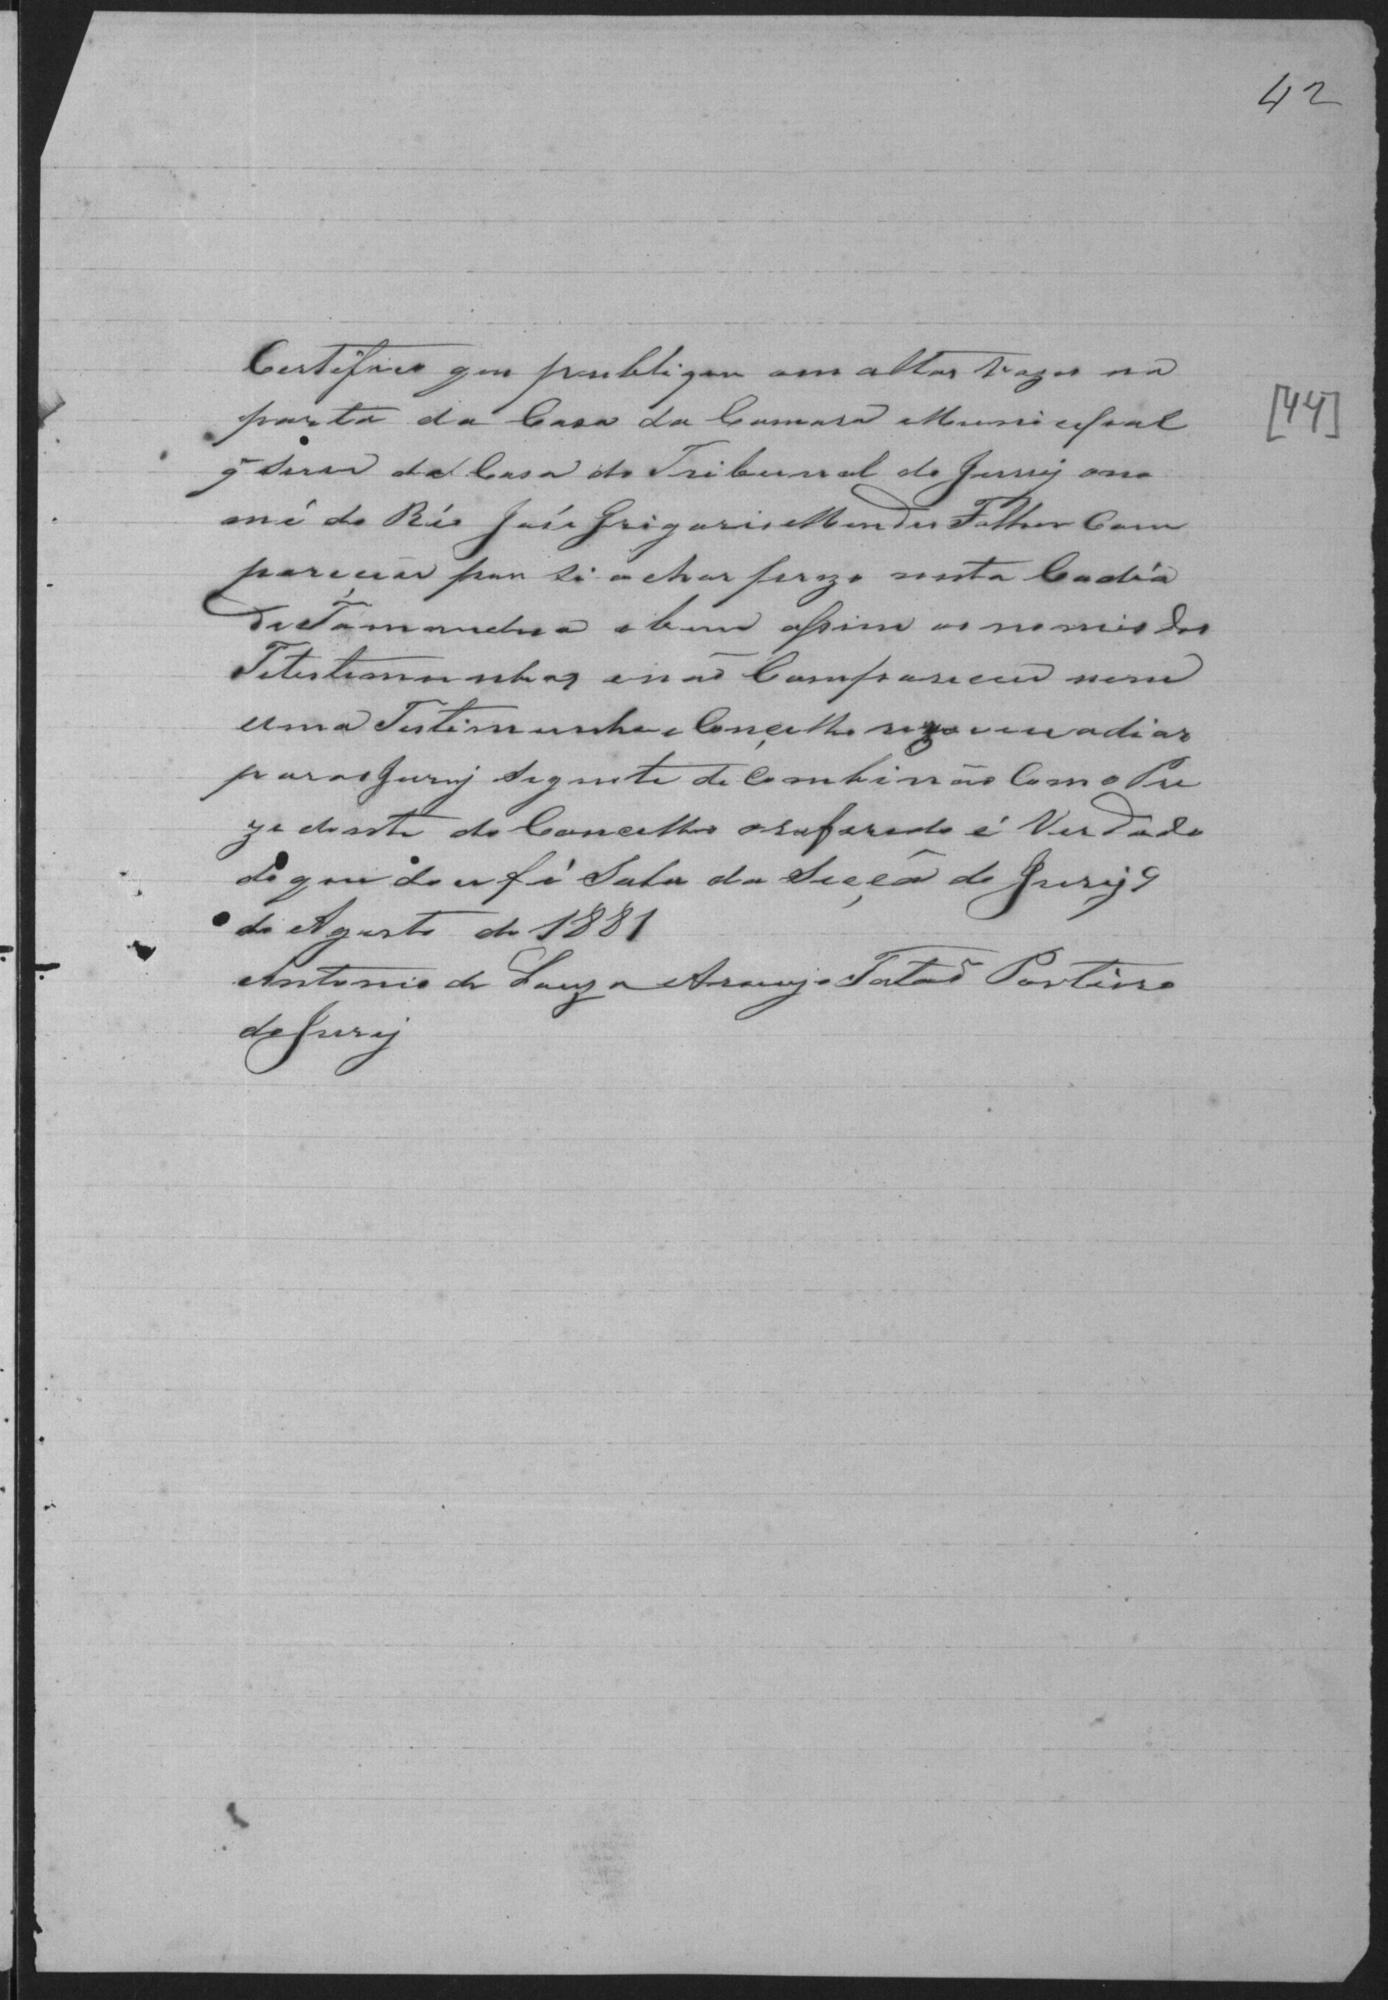 42
[44]
Certifico que publiquei em altas vozes na
porta da Casa da Camara Municipal
q̃ serve de Casa do Tribunal do Jurij ono
me do Réo José Grigorio Mendes Falhou Com
parecer por si achar prezo nesta Cadêa
de Tamandua e bem assim os nomes das
Tetestemunhas enaõ Compareceu nem
uma Testimunha e Conçelho rezoveu adiar
para o Jurij seguinte de Combinnão Com o Pre
zedente do Concelho oreferedo é Verdade
do que dou fé Sala da Secçã do Jurij 9
de Agusto de 1881
Antonio de Souza Araujo Tataõ Porteiro
do Jurij